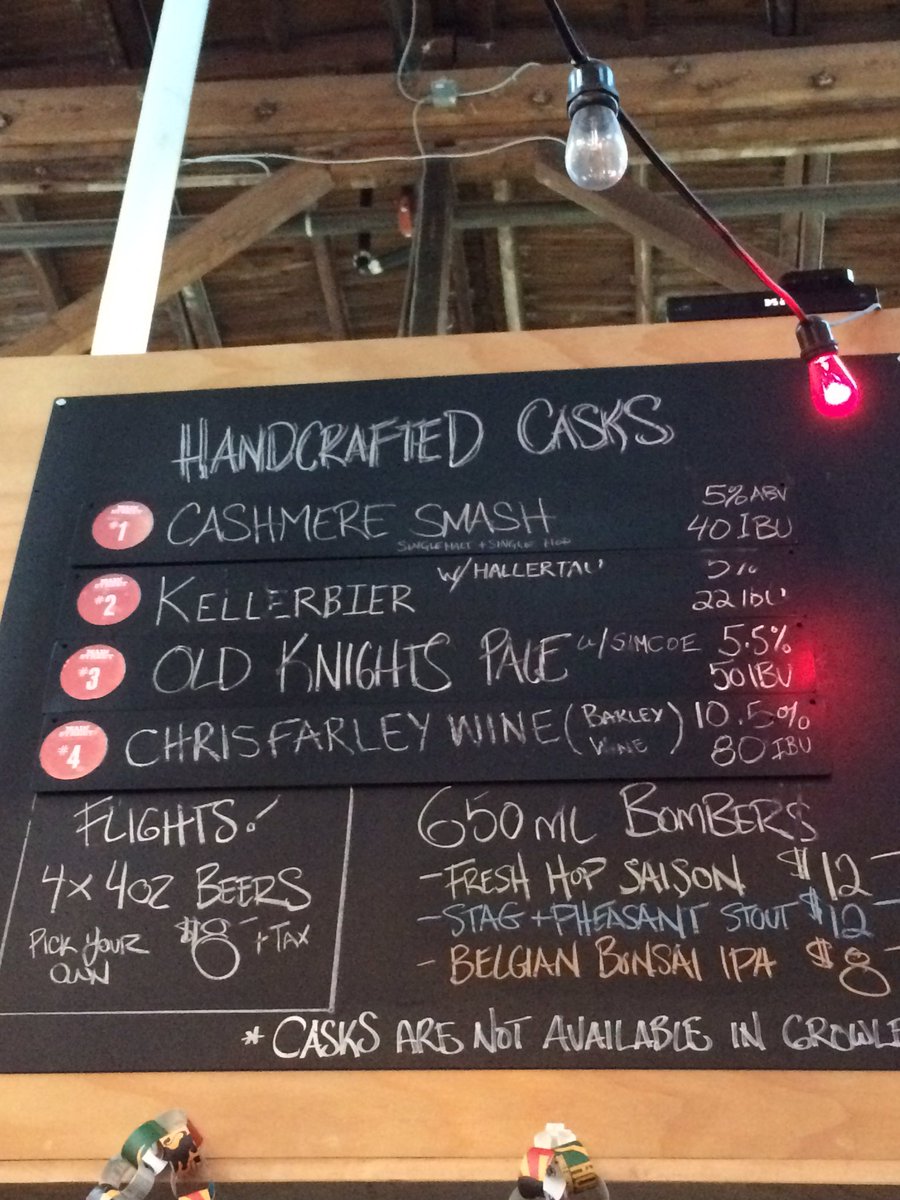 HANDCRAFTED CASKS
#1 CASHMERE SMASH 5% ABV
SINGLE MALT + SINGLE HOP 40 IBU
#2 KELLERBIER W/HALLERTAU 5%
22 IBU
#3 OLD KNIGHTS PALE w/SIMCOE 5.5%
50 IBU
#4 CHRIS FARLEY WINE (BARLEY WINE) 10.5%
80 IBU
FLIGHTS!
4x 4oz BEERS
PICK YOUR OWN $8 + TAX
650 ML BOMBERS
- FRESH HOP SAISON $12
- STAG + PHEASANT STOUT $12
- BELGIAN BONSAI IPA $8
* CASKS ARE NOT AVAILABLE IN GROWLE